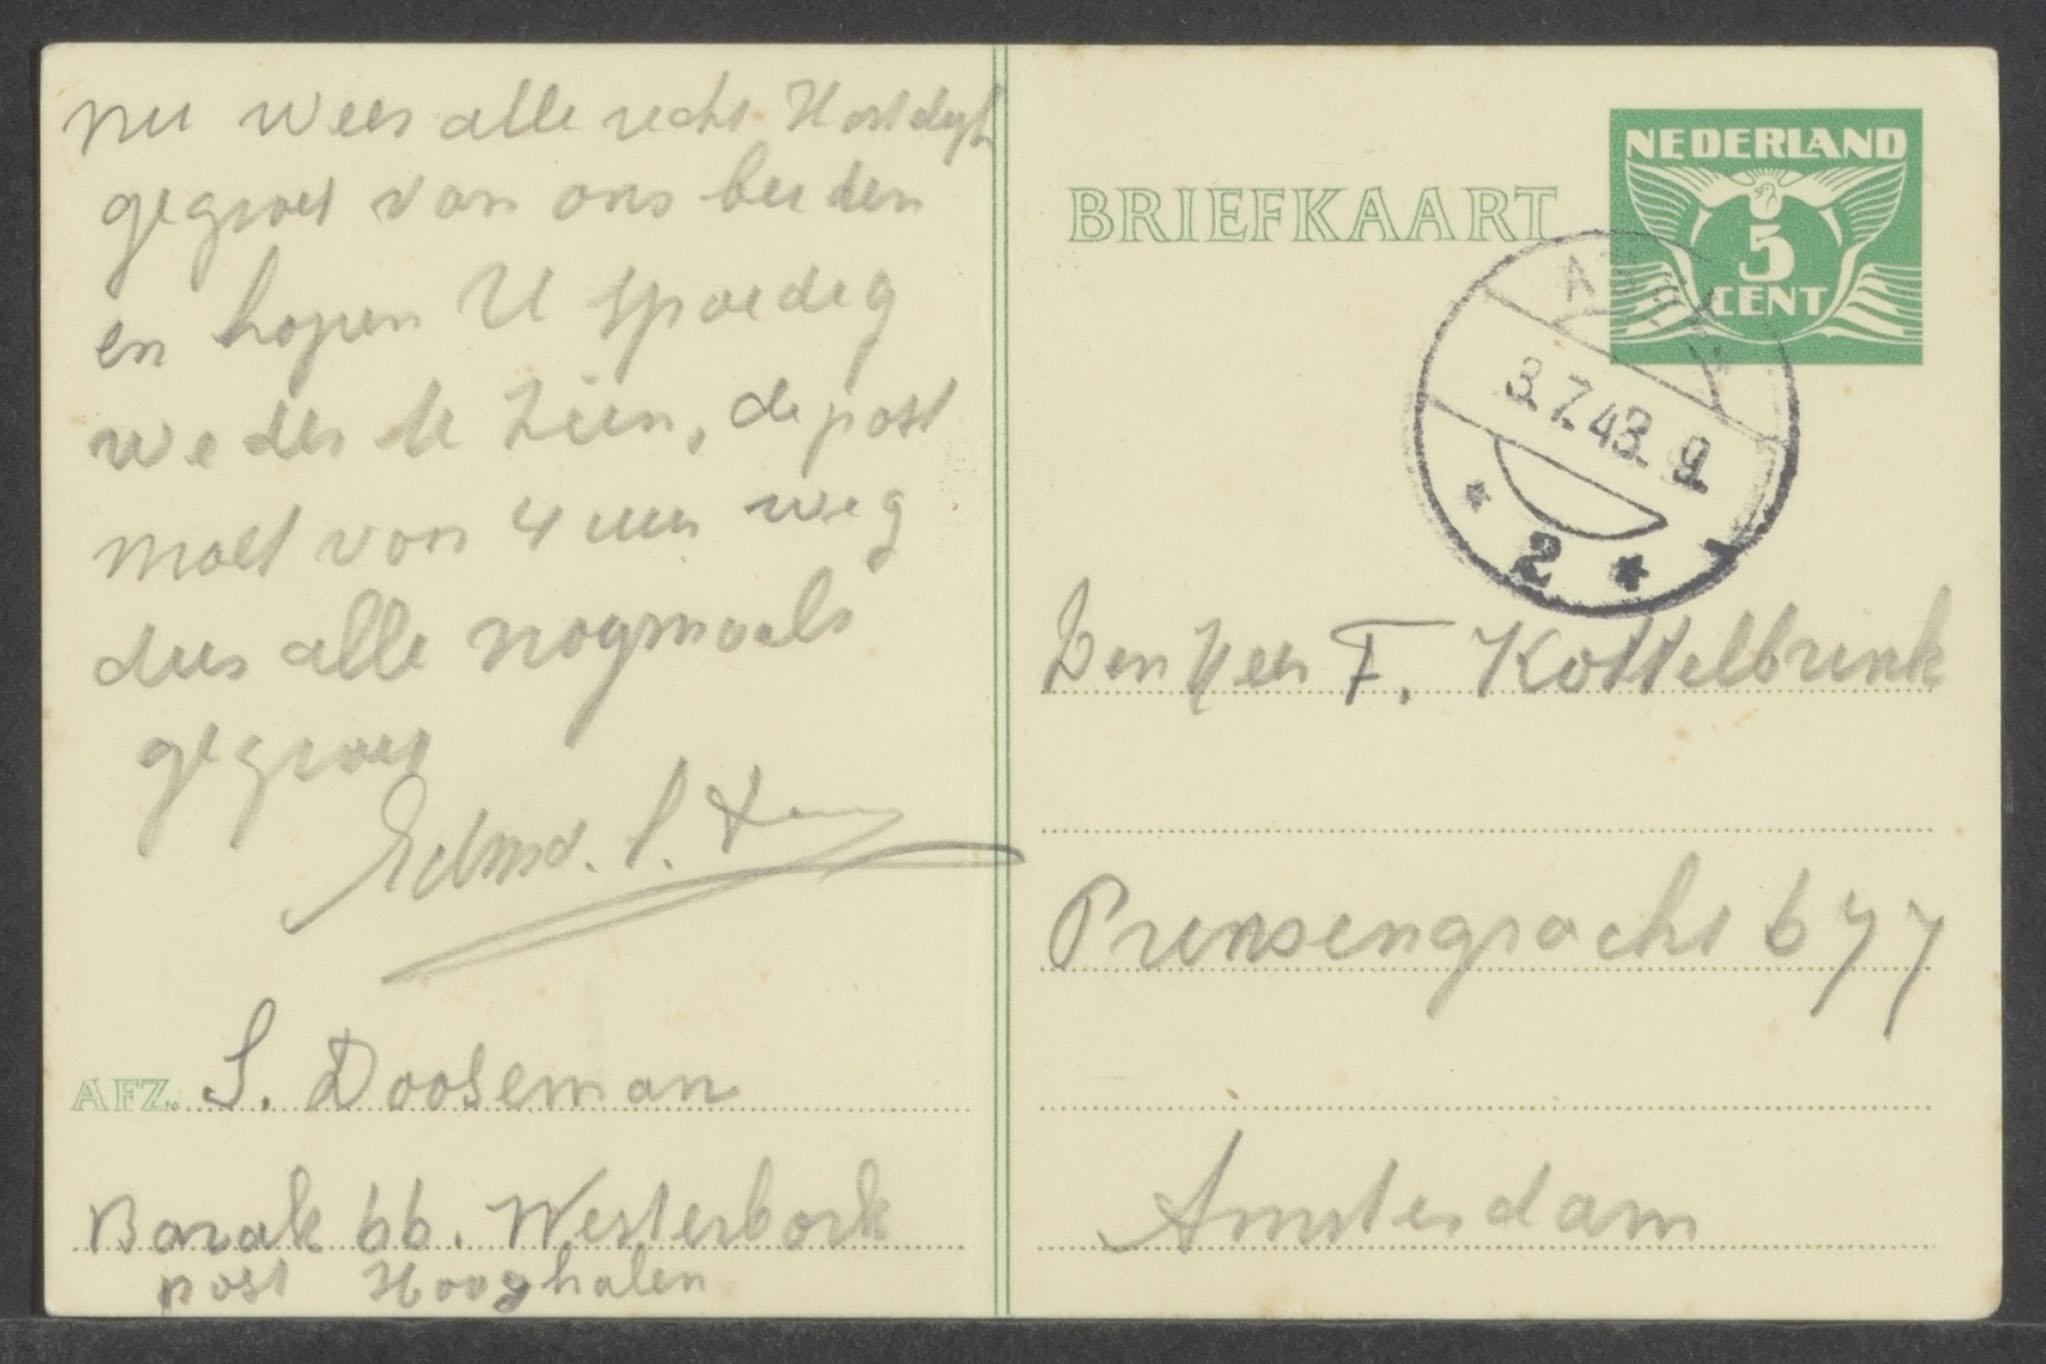 nu wees alle recht Hartelyk
gegroet van ons beiden
en hopen U spoedig
weder te zien, de post
moet voor 4 uur weg
dus alle nogmaals
gegroet
S.
AFZ. S. Dooseman
Barak 66. Westerbork
post Hooghalen
BRIEFKAART
NEDERLAND
5
CENT
3.7.43. 9
2
Den Heer F. Kottelbrink
Prinsengracht 677
Amsterdam